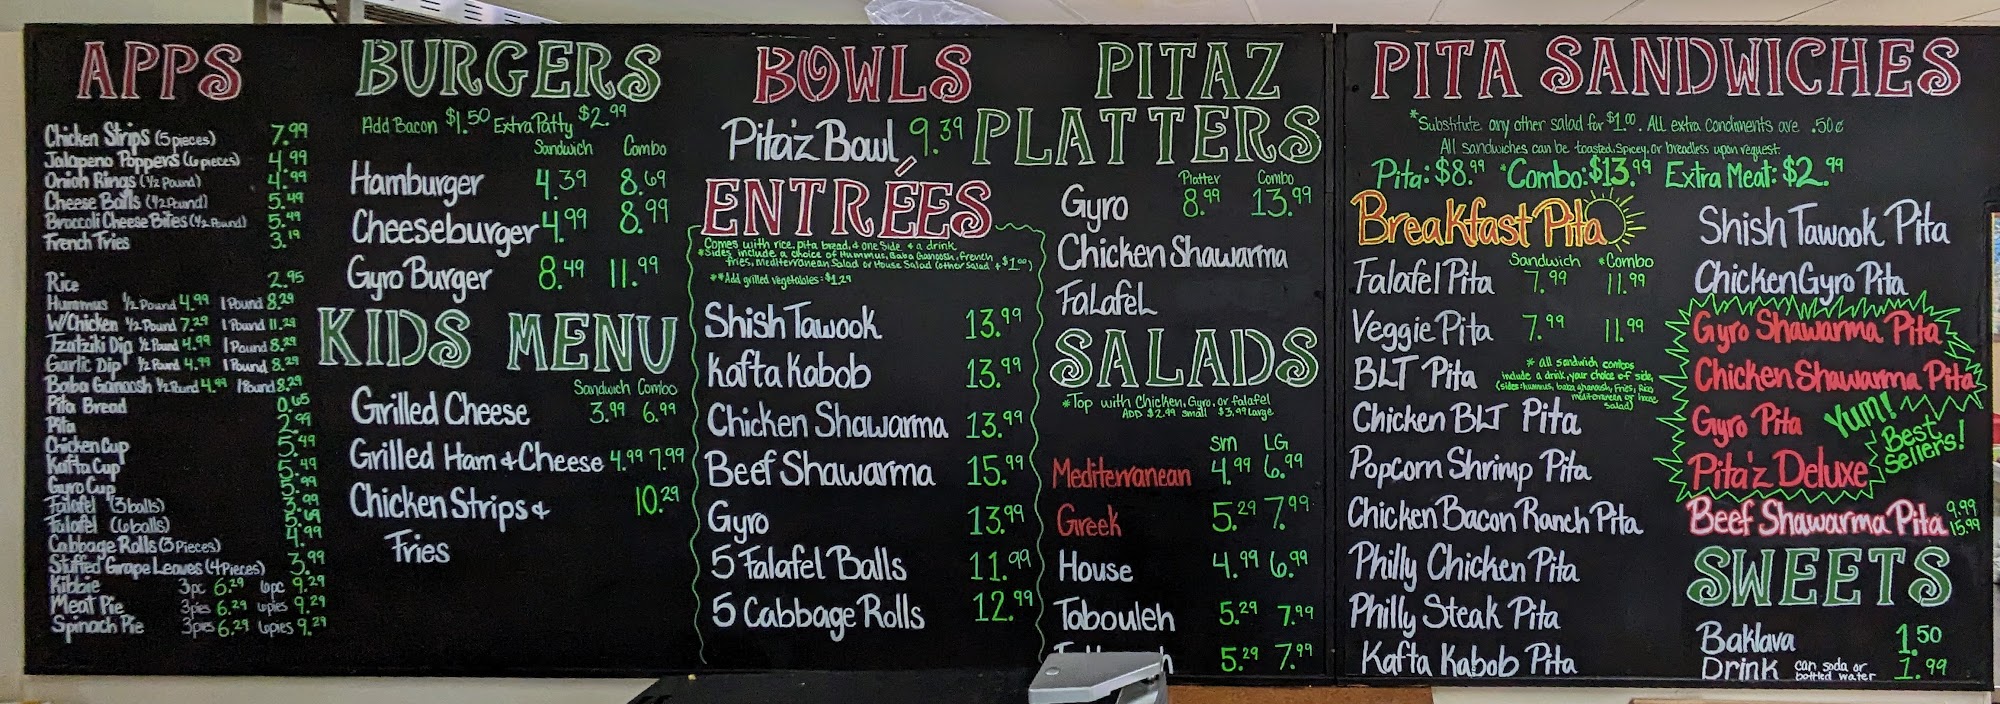 APPS
Chicken Strips (5 pieces) 7.99
Jalapeno Poppers (6 pieces) 4.99
Onion Rings (1/2 Pound) 4.99
Cheese Balls (1/2 Pound) 5.49
Broccoli Cheese Bites (1/2 Pound) 5.49
French Fries 3.19
Rice 2.95
Hummus 1/2 Pound 4.99 1 Pound 8.29
W/Chicken 1/2 Pound 7.29 1 Pound 11.29
Tzatziki Dip 1/2 Pound 4.99 1 Pound 8.29
Garlic Dip 1/2 Pound 4.99 1 Pound 8.29
Baba Ganoosh 1/2 Pound 4.99 1 Pound 8.29
Pita Bread 0.65
Pita 2.99
Chicken Cup 5.49
Kafta Cup 5.49
Gyro Cup 5.99
Falafel (3 balls) 3.99
Falafel (6 balls) 5.69
Cabbage Rolls (3 Pieces) 4.99
Stuffed Grape Leaves (4 Pieces) 3.99
Kibbie 3pc 6.29 6pc 9.29
Meat Pie 3pies 6.29 6pies 9.29
Spinach Pie 3pies 6.29 6pies 9.29
BURGERS
Add Bacon $1.50 Extra Patty $2.99
Sandwich Combo
Hamburger 4.39 8.69
Cheeseburger 4.99 8.99
Gyro Burger 8.49 11.99
KIDS MENU
Sandwich Combo
Grilled Cheese 3.99 6.99
Grilled Ham & Cheese 4.99 7.99
Chicken Strips & 10.29
Fries
BOWLS
Pita'z Bowl 9.39
ENTRÉES
Comes with rice, pita bread, & one side & a drink
*Sides include a choice of Hummus, Baba Ganoosh, French
fries, Mediterranean Salad or House Salad (other Salad + $1.00)
**Add grilled vegetables: $1.29
Shish Tawook 13.99
Kafta Kabob 13.99
Chicken Shawarma 13.99
Beef Shawarma 15.99
Gyro 13.99
5 Falafel Balls 11.99
5 Cabbage Rolls 12.99
PITAZ
PLATTERS
Platter Combo
Gyro 8.99 13.99
Chicken Shawarma
FaLafeL
SALADS
*Top with Chicken, Gyro, or falafel
ADD $2.99 small $3.99 Large
Sm LG
Mediterranean 4.99 6.99
Greek 5.29 7.99
House 4.99 6.99
Tabouleh 5.29 7.99
5.29 7.99
PITA SANDWICHES
*Substitute any other salad for $1.00. All extra condiments are .50¢
All sandwiches can be toasted, spicey, or breadless upon request.
Pita: $8.99 *Combo: $13.99 Extra Meat: $2.99
Breakfast Pita
Sandwich *Combo
Falafel Pita 7.99 11.99
Veggie Pita 7.99 11.99
* all sandwich combos
include a drink, your choice of side,
(sides: hummus, baba ghanoush, Fries, Rice
mediterranean or house
salad)
BLT Pita
Chicken BLT Pita
Popcorn Shrimp Pita
Chicken Bacon Ranch Pita
Philly Chicken Pita
Philly Steak Pita
Kafta Kabob Pita
Shish Tawook Pita
Chicken Gyro Pita
Gyro Shawarma Pita
Chicken Shawarma Pita
Gyro Pita
Pita'z Deluxe
Yum!
Best
Sellers!
Beef Shawarma Pita 9.99
15.99
SWEETS
Baklava 1.50
Drink can soda or
bottled water 1.99